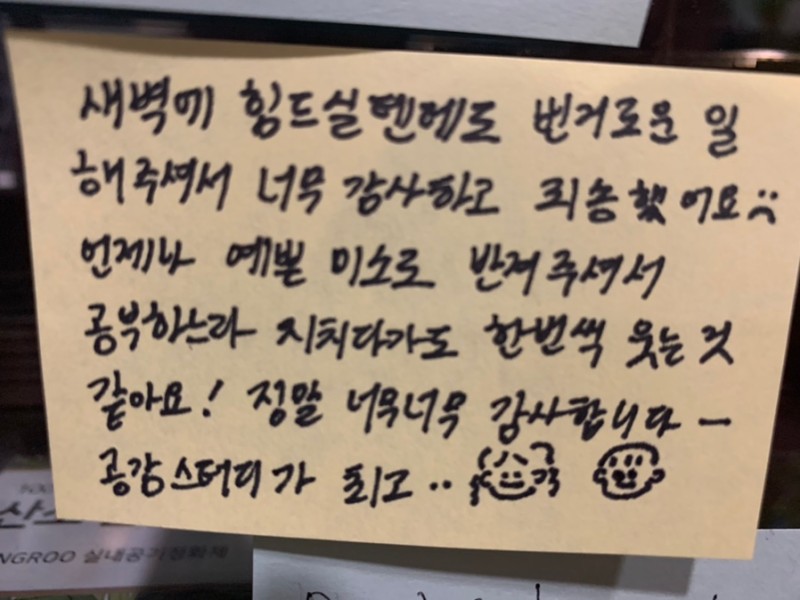 새벽에 힘드실텐데도 번거로운 일
해주셔서 너무 감사하고 죄송했어요
언제나 예쁜 미소로 반겨주셔서
공부하느라 지치다가도 한번씩 웃는 것
같아요! 정말 너무너무 감사합니다 ㅡ
공감스터디가 최고..
NGROO 실내공기정화제